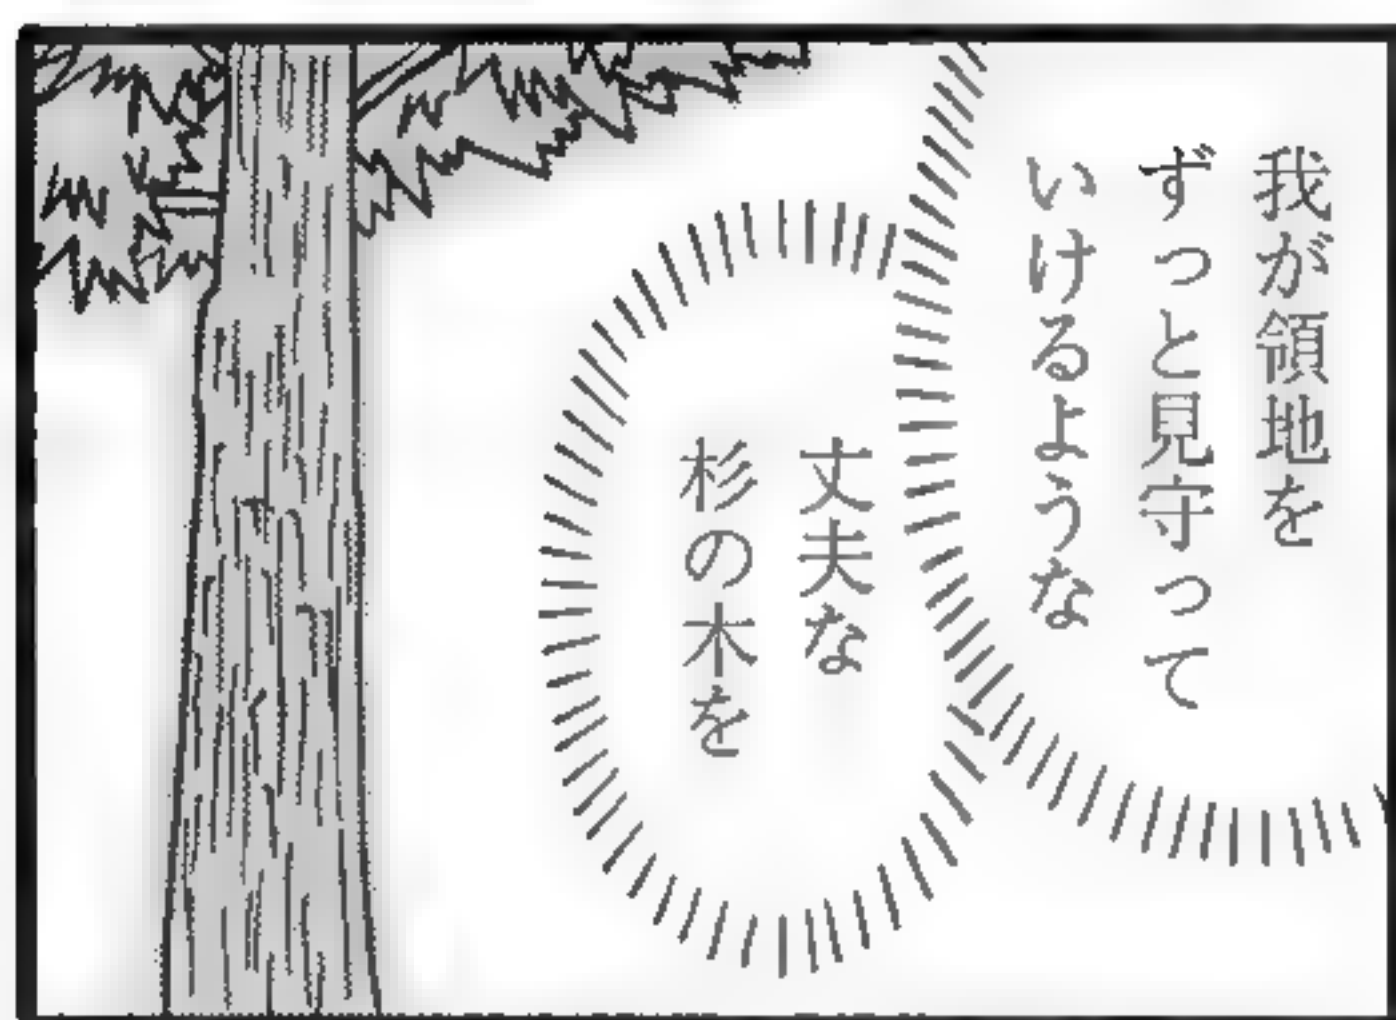 我が領地を
ずっと見守って
いけるような
丈夫な
杉の木を